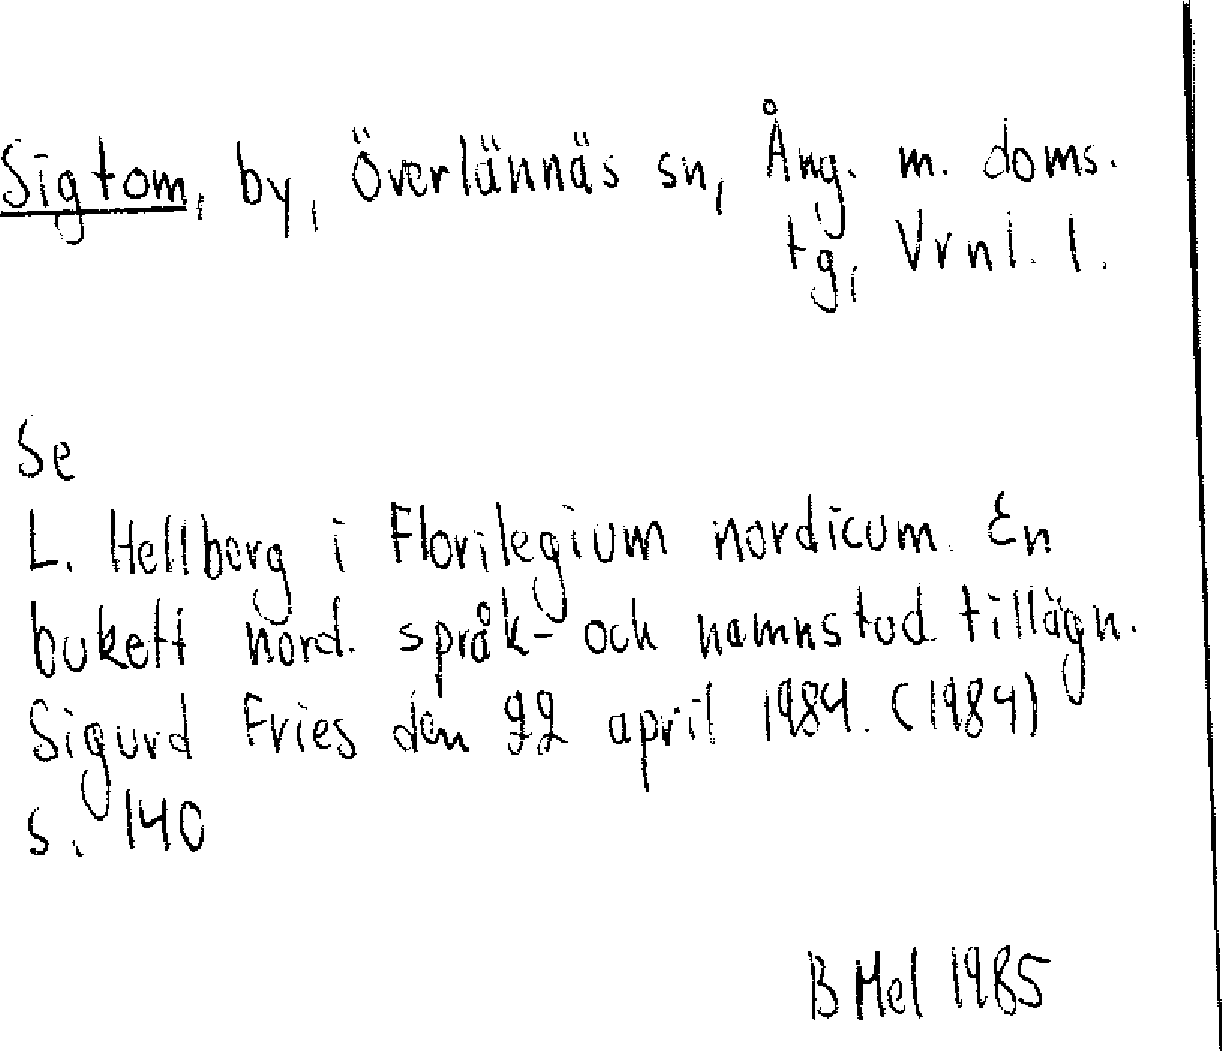 Sigtom, by, Överlännäs sn, Ång. m. doms.
tg, Vrnl. l.
Se
L. Hellberg i Florilegium nordicum. En
bukett nord. språk- och namnstud. tillägn.
Sigurd Fries den 22 april 1984. (1984)
s. 140
B Mel 1985